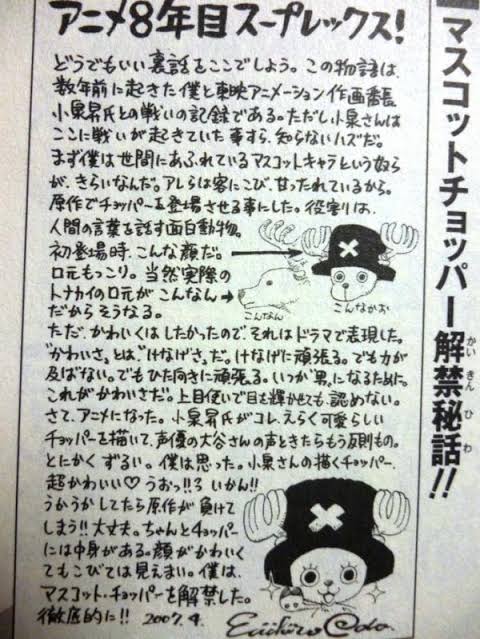 アニメ8年目スープレックス!
マスコットチョッパー解禁秘話!!
かいきんひわ
どうでもいい裏話をここでしよう。この物語は、
数年前に起きた僕と東映アニメーション作画番長
小泉昇氏との戦いの記録である。ただし小泉さんは
ここに戦いが起きていた事すら、知らないハズだ。
まず僕は世間にあふれているマスコットキャラという奴ら
が、きらいなんだ。アレらは客にこび、甘ったれているから。
原作でチョッパーを登場させる事にした。役割りは、
人間の言葉を話す面白動物。
初登場時、こんな顔だ。
口元もっこり。当然実際の
トナカイの口元がこんなん→
だからそうなる。
こんなん
こんなかお
ただ、かわいくはしたかったので、それはドラマで表現した。
"かわいさ"とは"けなげさ"だ。けなげに頑張る。でも力が
及ばない。でもひた向きに頑張る。いつか"男"になるために。
これがかわいさだ。上目使いで目を輝かせても、認めない。
さて、アニメになった。小泉昇氏がコレ、えらく可愛らしい
チョッパーを描いて、声優の大谷さんの声ときたらもう反則もの。
とにかくずるい。僕は思った。小泉さんの描くチョッパー、
超かわいい♡うおっ!!ろいかん!!
うかうかしてたら原作が負けて
しまう!!大丈夫。ちゃんとチョッパー
には中身がある。顔がかわいく
てもこびては見えまい。僕は、
マスコット・チョッパーを解禁した。
徹底的に!! 2007.4.
Eiichiro Oda